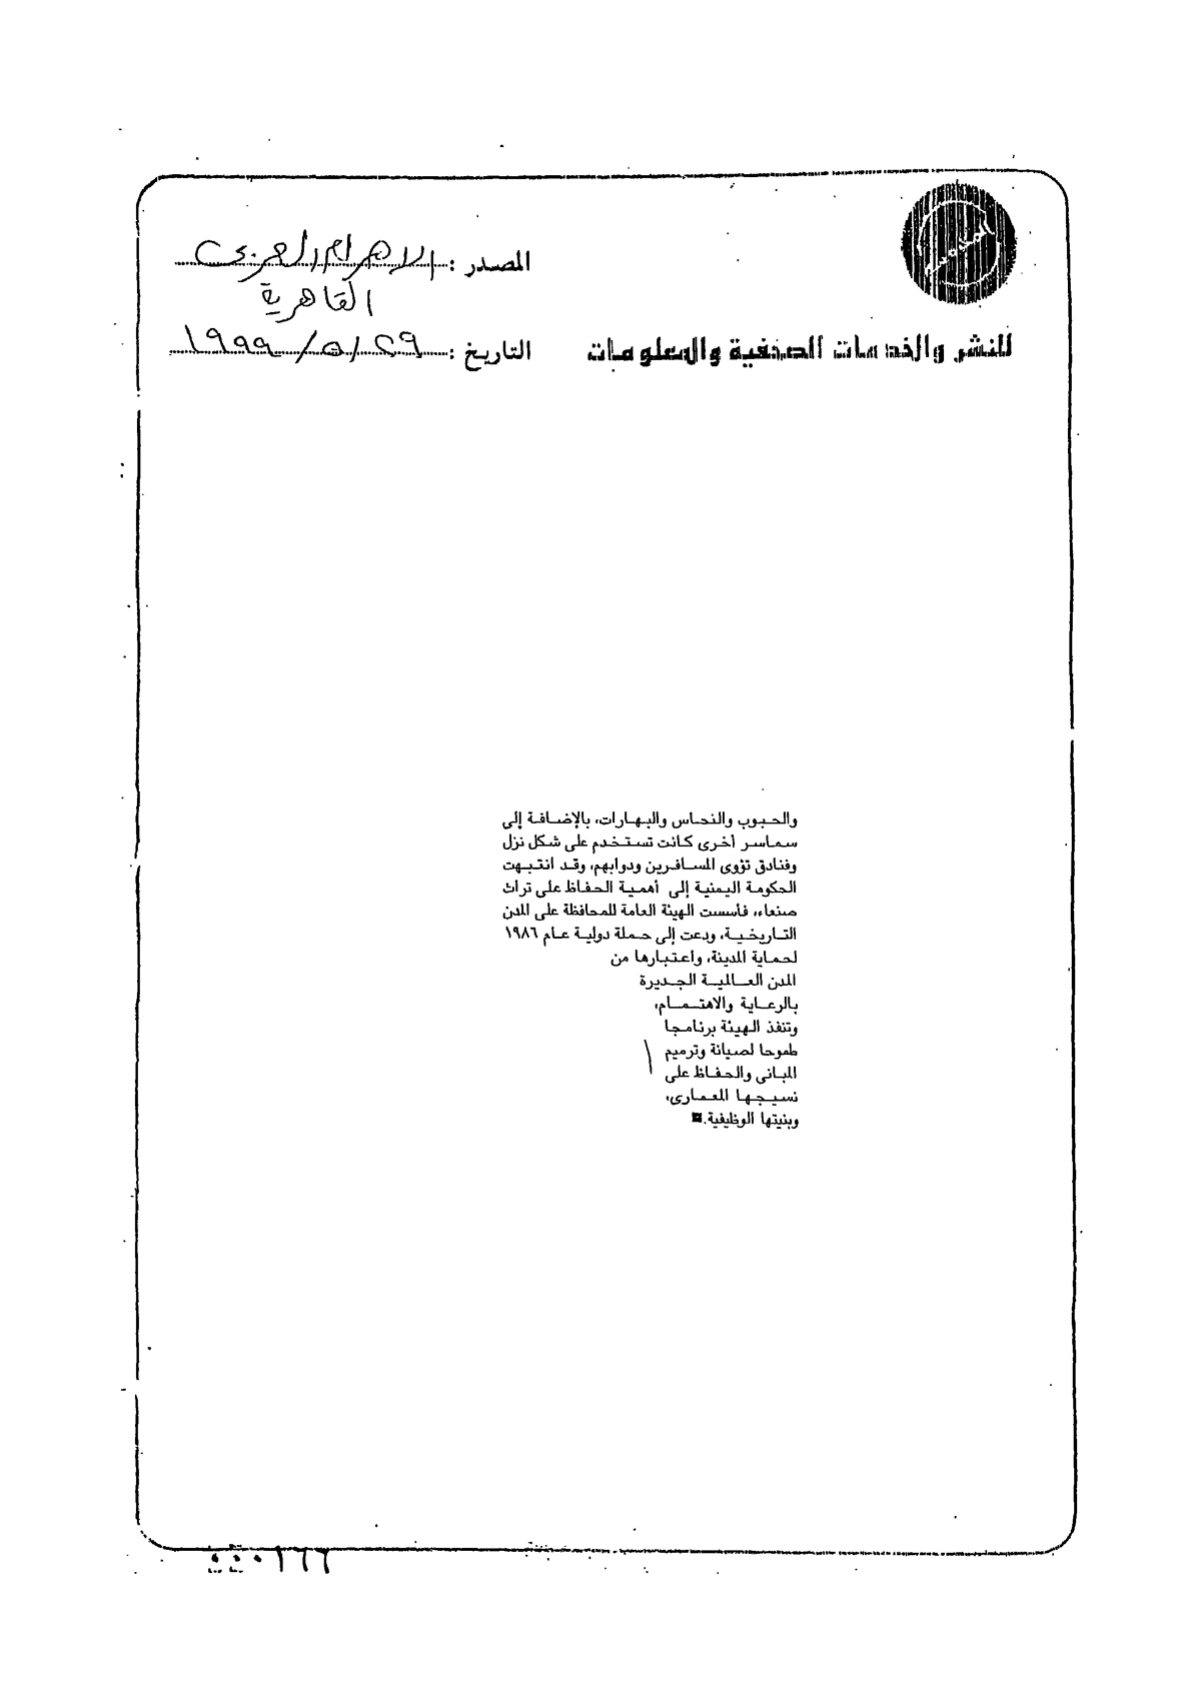 المصدر : الاهرام العربى
القاهرية
للنشر والخدمات الصحفية والمعلومات
التاريخ : ٢٩ / ٥ / ١٩٩٩
والحبوب والنحاس والبهارات، بالإضافة إلى
سماسر أخرى كانت تستخدم على شكل نزل
وفنادق تؤوى المسافرين ودوابهم، وقد انتبهت
الحكومة اليمنية إلى أهمية الحفاظ على تراث
صنعاء، فأسست الهيئة العامة للمحافظة على المدن
التاريخية، ودعت إلى حملة دولية عام ١٩٨٦
لحماية المدينة، واعتبارها من
المدن العالمية الجديرة
بالرعاية والاهتمام،
وتنفذ الهيئة برنامجا
طموحا لصيانة وترميم
المبانى والحفاظ على
نسيجها المعمارى،
وبنيتها الوظيفية.